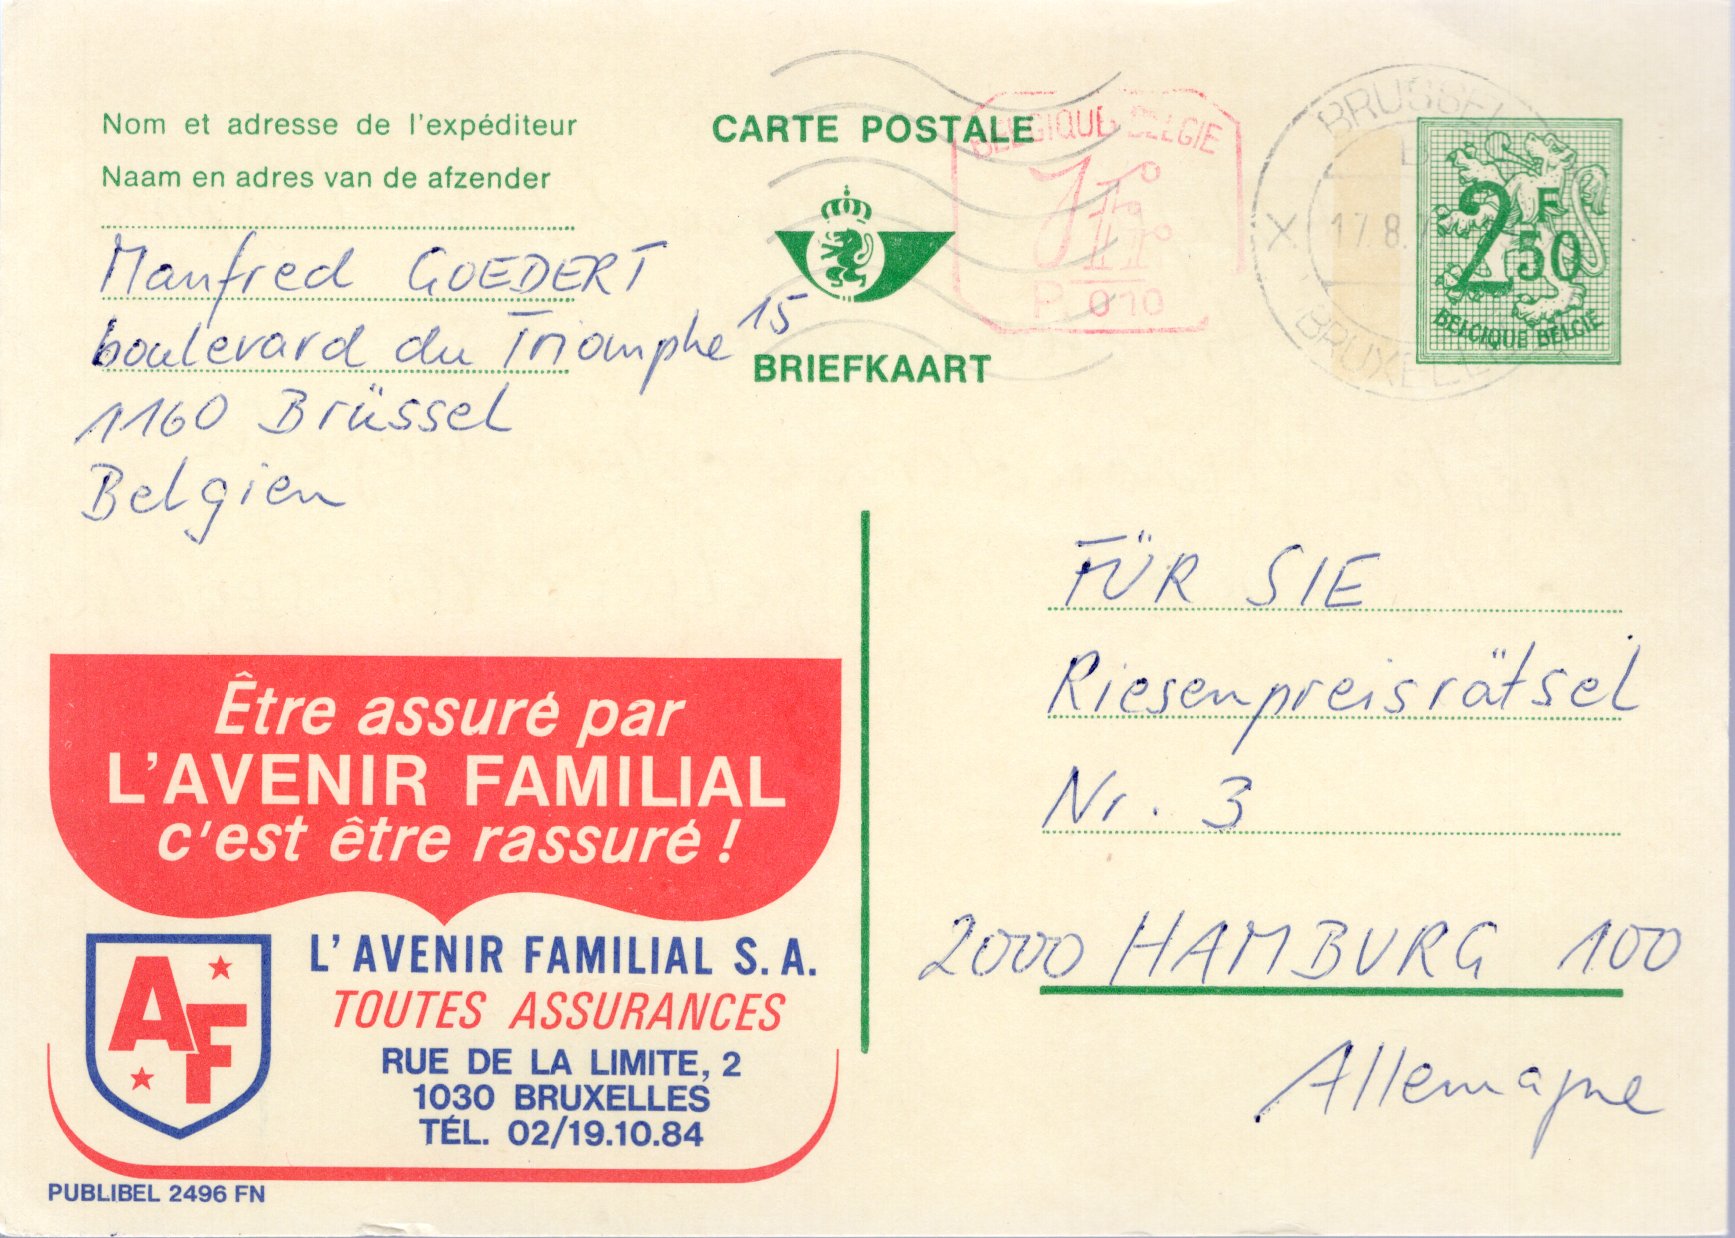 Nom et adresse de l'expéditeur
Naam en adres van de afzender
Manfred GOEDERT
boulevard du Triomphe 15
1160 Brüssel
Belgien
CARTE POSTALE
BRIEFKAART
BELGIQUE BELGIE
1F00
P. 010
BRUSSEL
X 17.8.7
BRUXELLES
2F50
BELGIQUE BELGIË
FÜR SIE
Riesenpreisrätsel
Nr. 3
2000 HAMBURG 100
Allemagne
Être assuré par
L'AVENIR FAMILIAL
c'est être rassuré !
AF
L'AVENIR FAMILIAL S.A.
TOUTES ASSURANCES
RUE DE LA LIMITE, 2
1030 BRUXELLES
TÉL. 02/19.10.84
PUBLIBEL 2496 FN